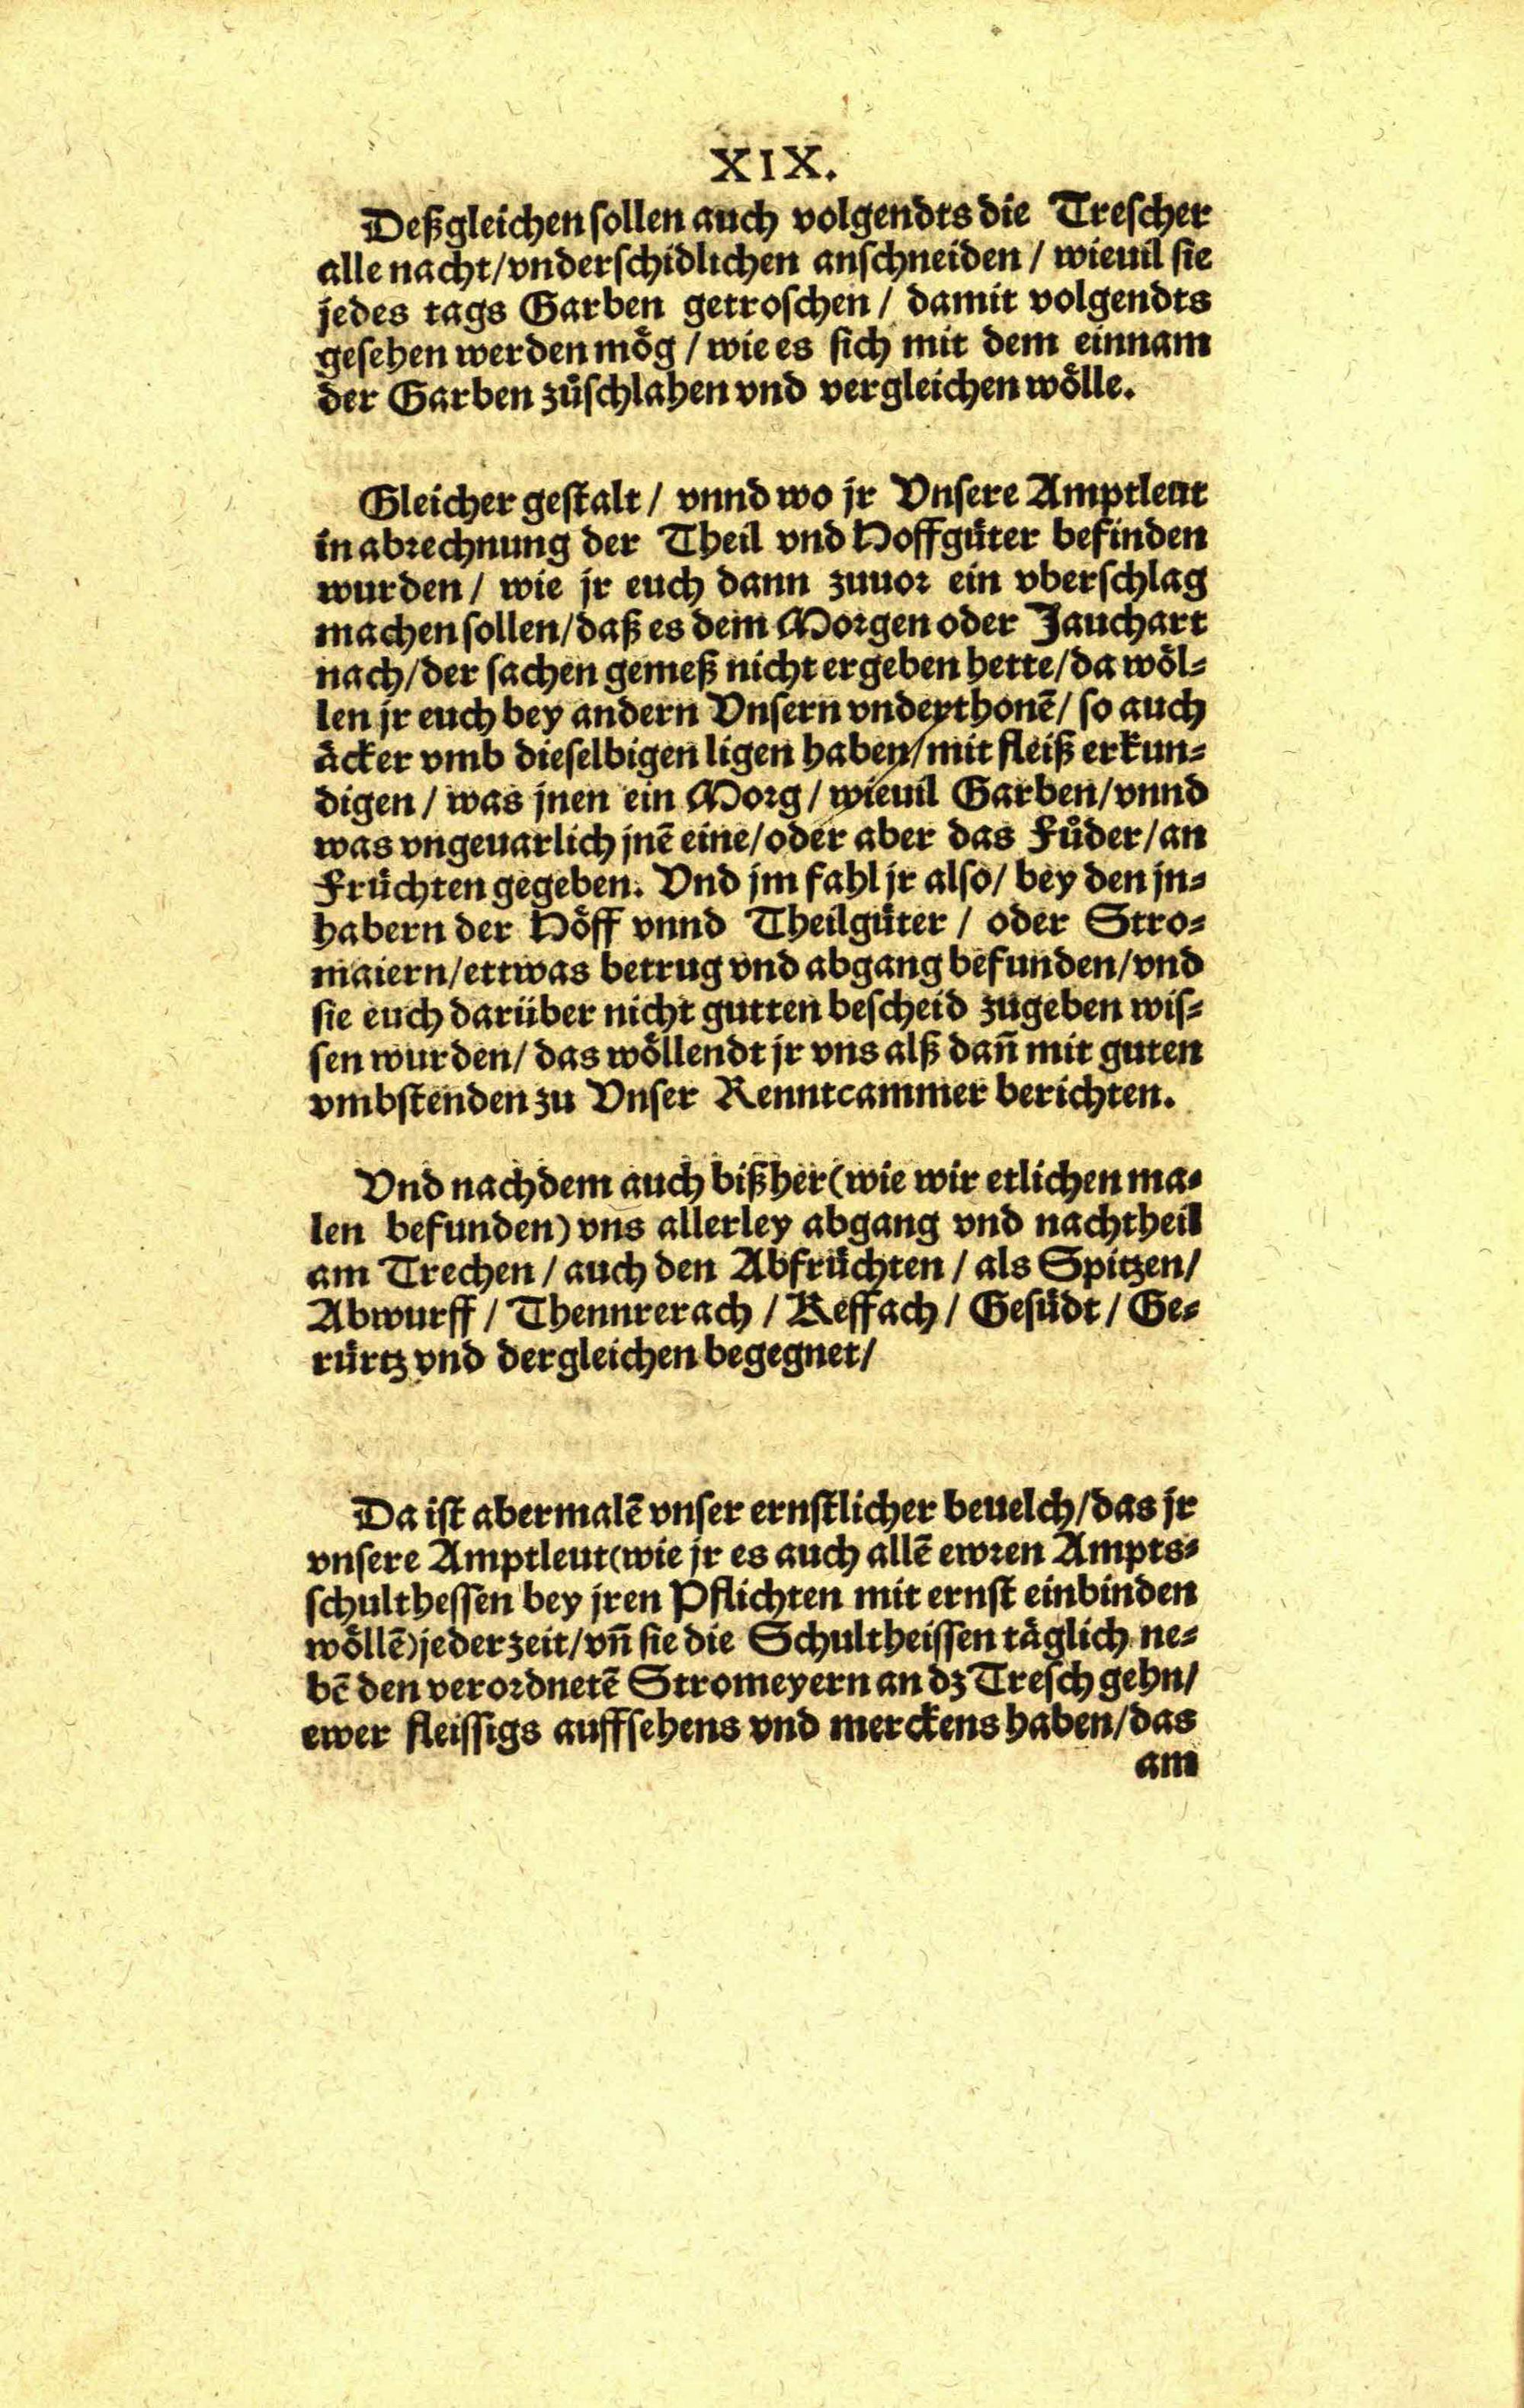 XIX.
Deßgleichen sollen auch volgendts die Trescher
alle nacht/vnderschidlichen anschneiden / wieuil sie
jedes tags Garben getroschen / damit volgendts
gesehen werden mög / wie es sich mit dem einnam
der Garben zůschlahen vnd vergleichen wölle.
Gleicher gestalt / vnnd wo jr Vnsere Amptleut
in abrechnung der Theil vnd Hoffgüter befinden
wurden / wie jr euch dann zuuor ein vberschlag
machen sollen/daß es dem Morgen oder Jauchart
nach/der sachen gemeß nicht ergeben hette/da wöl-
len jr euch bey andern Vnsern vnderthonē/ so auch
äcker vmb dieselbigen ligen haben/mit fleiß erkun-
digen / was jnen ein Morg / wieuil Garben/vnnd
was vngeuarlich jnē eine/oder aber das Fůder/an
Früchten gegeben. Vnd jm fahl jr also/ bey den jn-
habern der Höff vnnd Theilgüter / oder Stro-
maiern/ettwas betrug vnd abgang befunden/vnd
sie euch darüber nicht gutten bescheid zůgeben wis-
sen wurden/ das wöllendt jr vns alß dañ mit guten
vmbstenden zu Vnser Renntcammer berichten.
Vnd nachdem auch bißher (wie wir etlichen ma-
len befunden) vns allerley abgang vnd nachtheil
am Trechen / auch den Abfrüchten / als Spitzen/
Abwurff / Thennrerach / Keffach / Gesüdt / Ge-
rürtz vnd dergleichen begegnet/
Da ist abermalē vnser ernstlicher beuelch/das jr
vnsere Amptleut (wie jr es auch allē ewren Ampts-
schulthessen bey jren Pflichten mit ernst einbinden
wöllē) jederzeit/vñ sie die Schultheissen täglich ne-
bē den verordnetē Stromeyern an dz Tresch gehn/
ewer fleissigs auffsehens vnd merckens haben/das
am